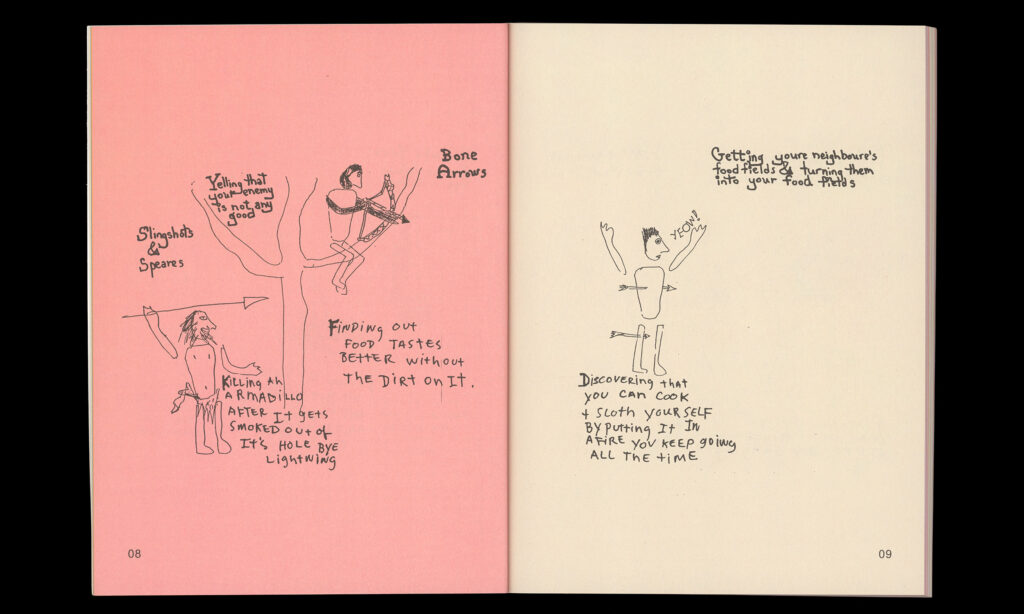 Bone
Arrows
Yelling that
your enemy
is not any
good
Slingshots
&
Speares
Finding out
food tastes
better without
the dirt on it.
Killing an
armadillo
after it gets
smoked out of
it's hole bye
lightning
08
Getting youre neighboure's
food fields & turning them
into your food fields
YEOW!
Discovering that
you can cook
+ sloth yourself
by putting it in
a fire you keep going
all the time
09